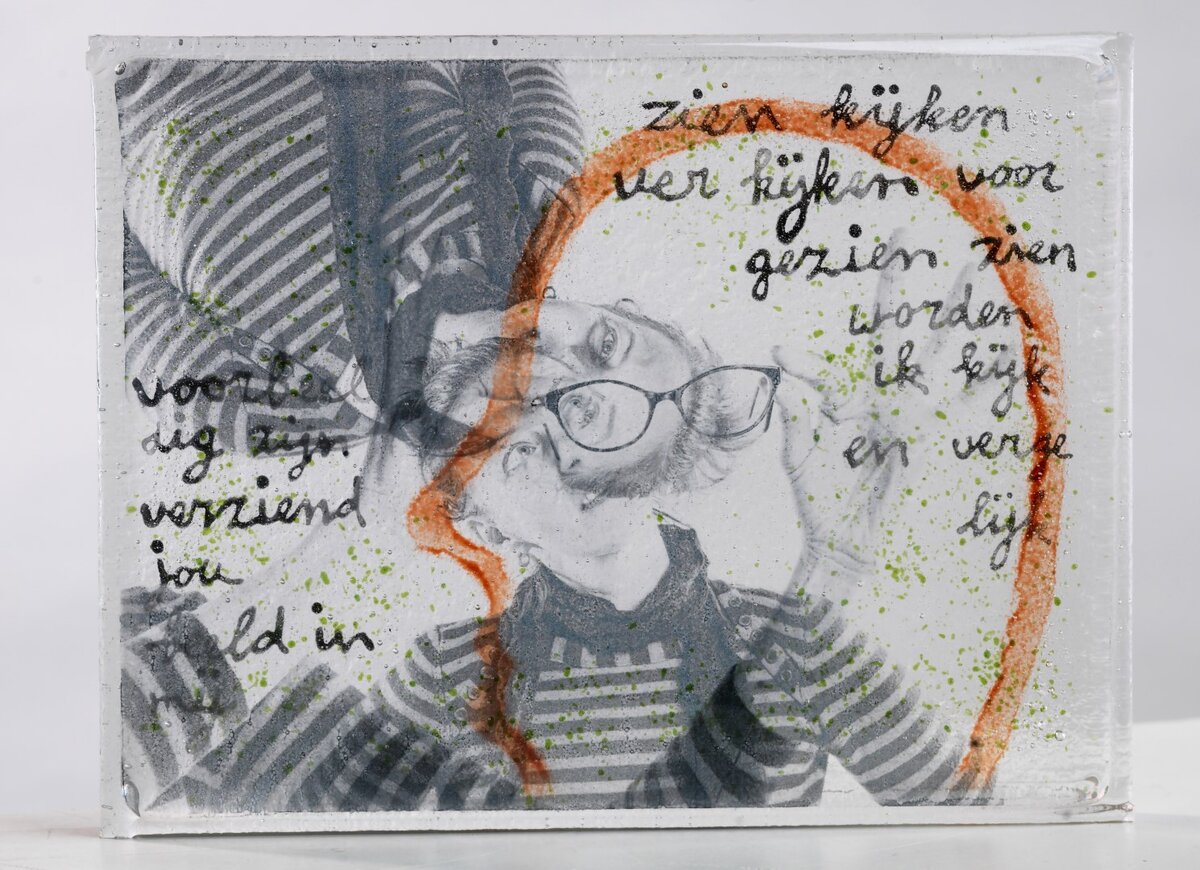 zien kijken
ver kijken voor
gezien zien
worden
ik kijk
en verge
lijk
voorbeel
dig zijn
verziend
jou
beeld in
mij